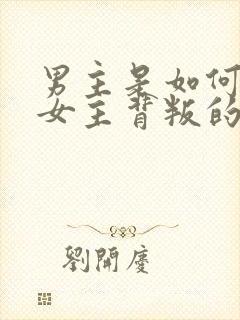 男主是如何
女主背叛的
劉開慶